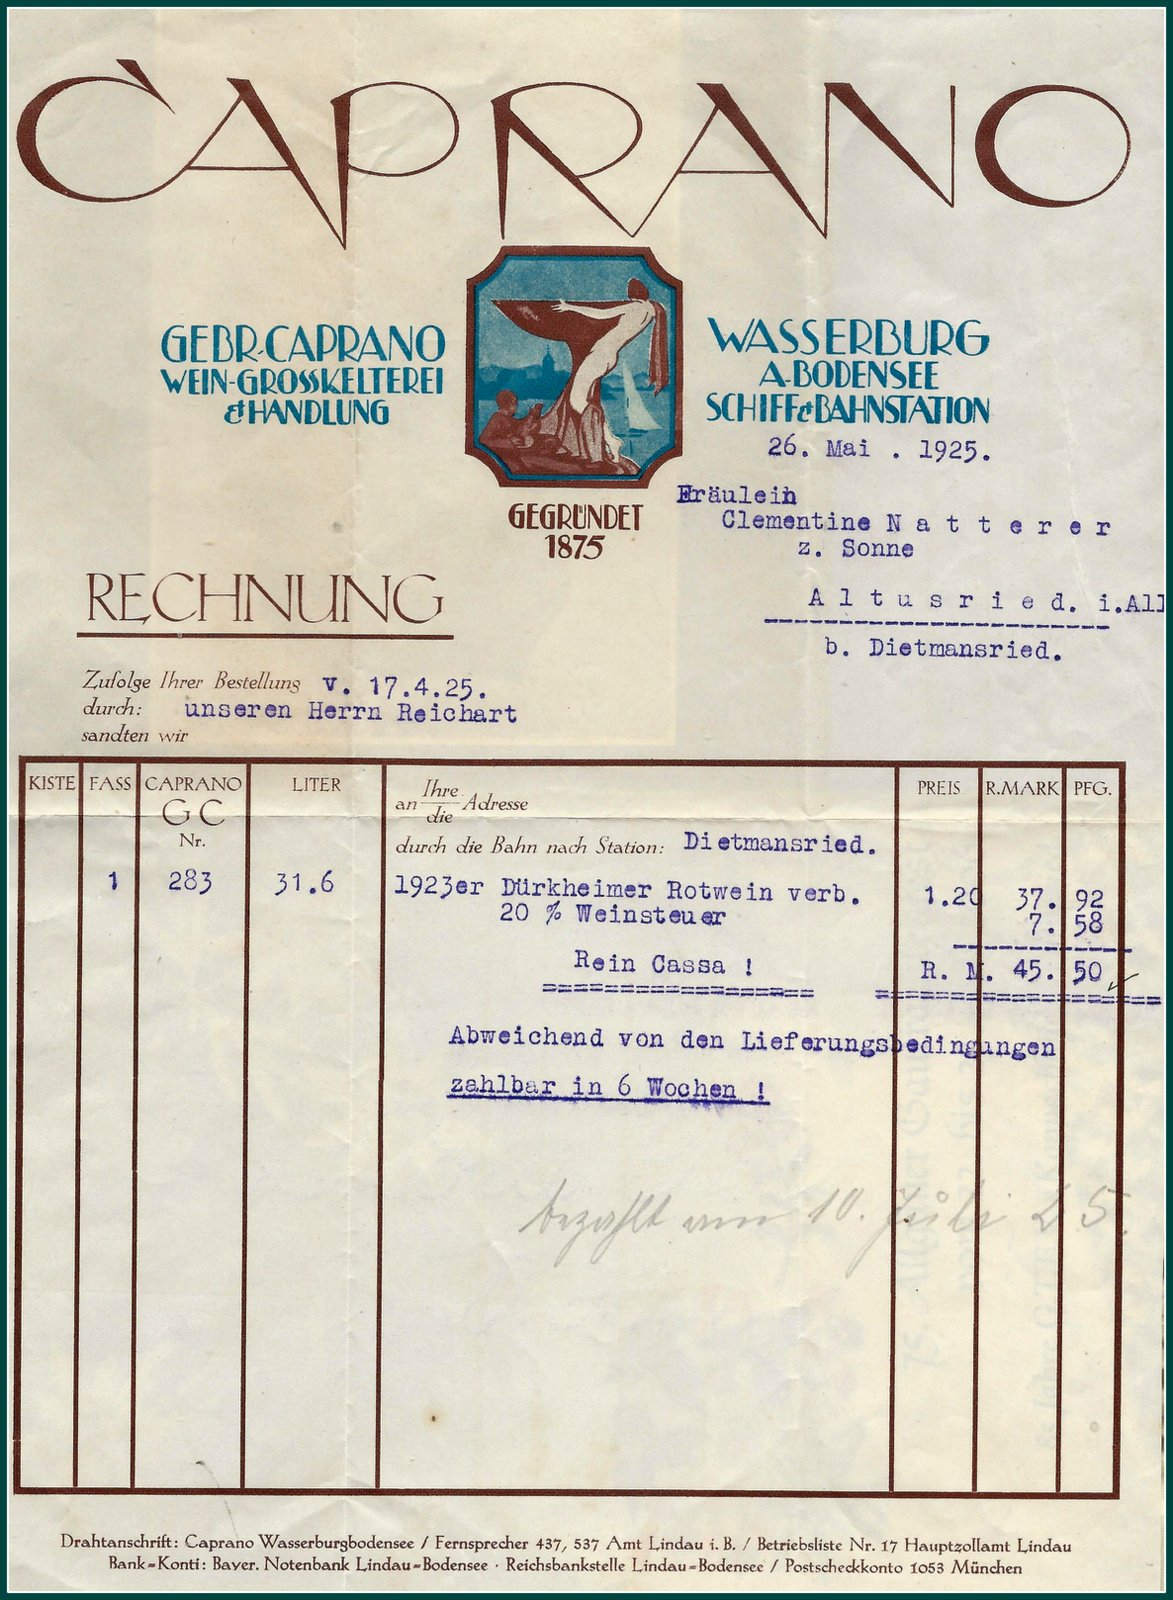 CAPRANO
GEBR. CAPRANO
WEIN-GROSSKELTEREI
& HANDLUNG
WASSERBURG
A-BODENSEE
SCHIFF & BAHNSTATION
GEGRÜNDET
1875
26. Mai . 1925.
Fräulein
Clementine N a t t e r e r
z. Sonne
A l t u s r i e d. i.All
b. Dietmansried.
RECHNUNG
Zufolge Ihrer Bestellung v. 17.4.25.
durch: unseren Herrn Reichart
sandten wir
KISTE FASS CAPRANO GC Nr. LITER an Ihre/die Adresse PREIS R.MARK PFG.
durch die Bahn nach Station: Dietmansried.
1 283 31.6 1923er Dürkheimer Rotwein verb. 1.20 37. 92
20 % Weinsteuer 7. 58
Rein Cassa ! R. M. 45. 50
Abweichend von den Lieferungsbedingungen
zahlbar in 6 Wochen !
bezahlt am 10. Juli 25.
Drahtanschrift: Caprano Wasserburgbodensee / Fernsprecher 437, 537 Amt Lindau i. B. / Betriebsliste Nr. 17 Hauptzollamt Lindau
Bank-Konti: Bayer. Notenbank Lindau-Bodensee · Reichsbankstelle Lindau-Bodensee / Postscheckkonto 1053 München